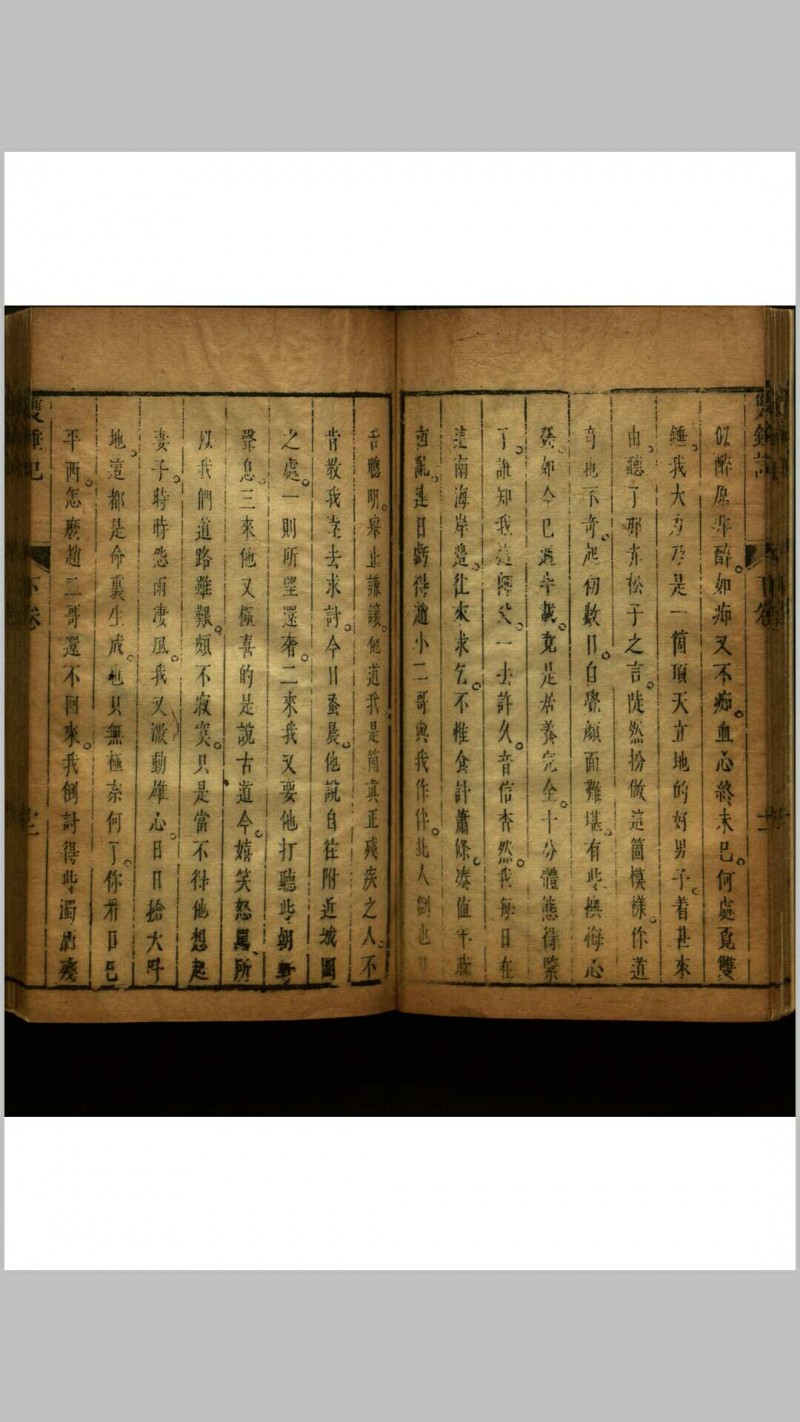 雙錘記
下卷
似醉原非醉。如痴又不痴。血心終未已。何處覓雙
錘。我大力乃是一箇頂天立地的好男子。着甚來
由。聽了那赤松子之言。陡然扮做這箇模樣。你道
奇也不奇。起初數日。自覺顔面難堪。有些懊悔心
如今已過半載。竟是居養完全。十分體態得緊
了。誰知我這師父一去許久。音信杳然。我每日在
這南海岸邊。往來求乞。不惟食計蕭條。湊值干戈
日虧得趙小二哥與我作伴。此人倒也
舌聰明。舉止謙讓。他道我是箇真正殘疾之人。不
肯教我遠去求討。今日蚤晨。他說自往附近城園
之處。一則所望還奢。二來我又要他打聽些朝野
聲息。三來他又極喜的是說古道今。嬉笑怒罵。所
以我們道路雖艱。頗不寂寞。只是當不得他想起
妻子。時時怨雨凄風。我又激動雄心。日日搶大呼
地。這都是命裏生成。也只無極奈何了。你看日已
平西。怎麽趙二哥還不回來。我倒討得些濁酒殘
雙錘記
下卷